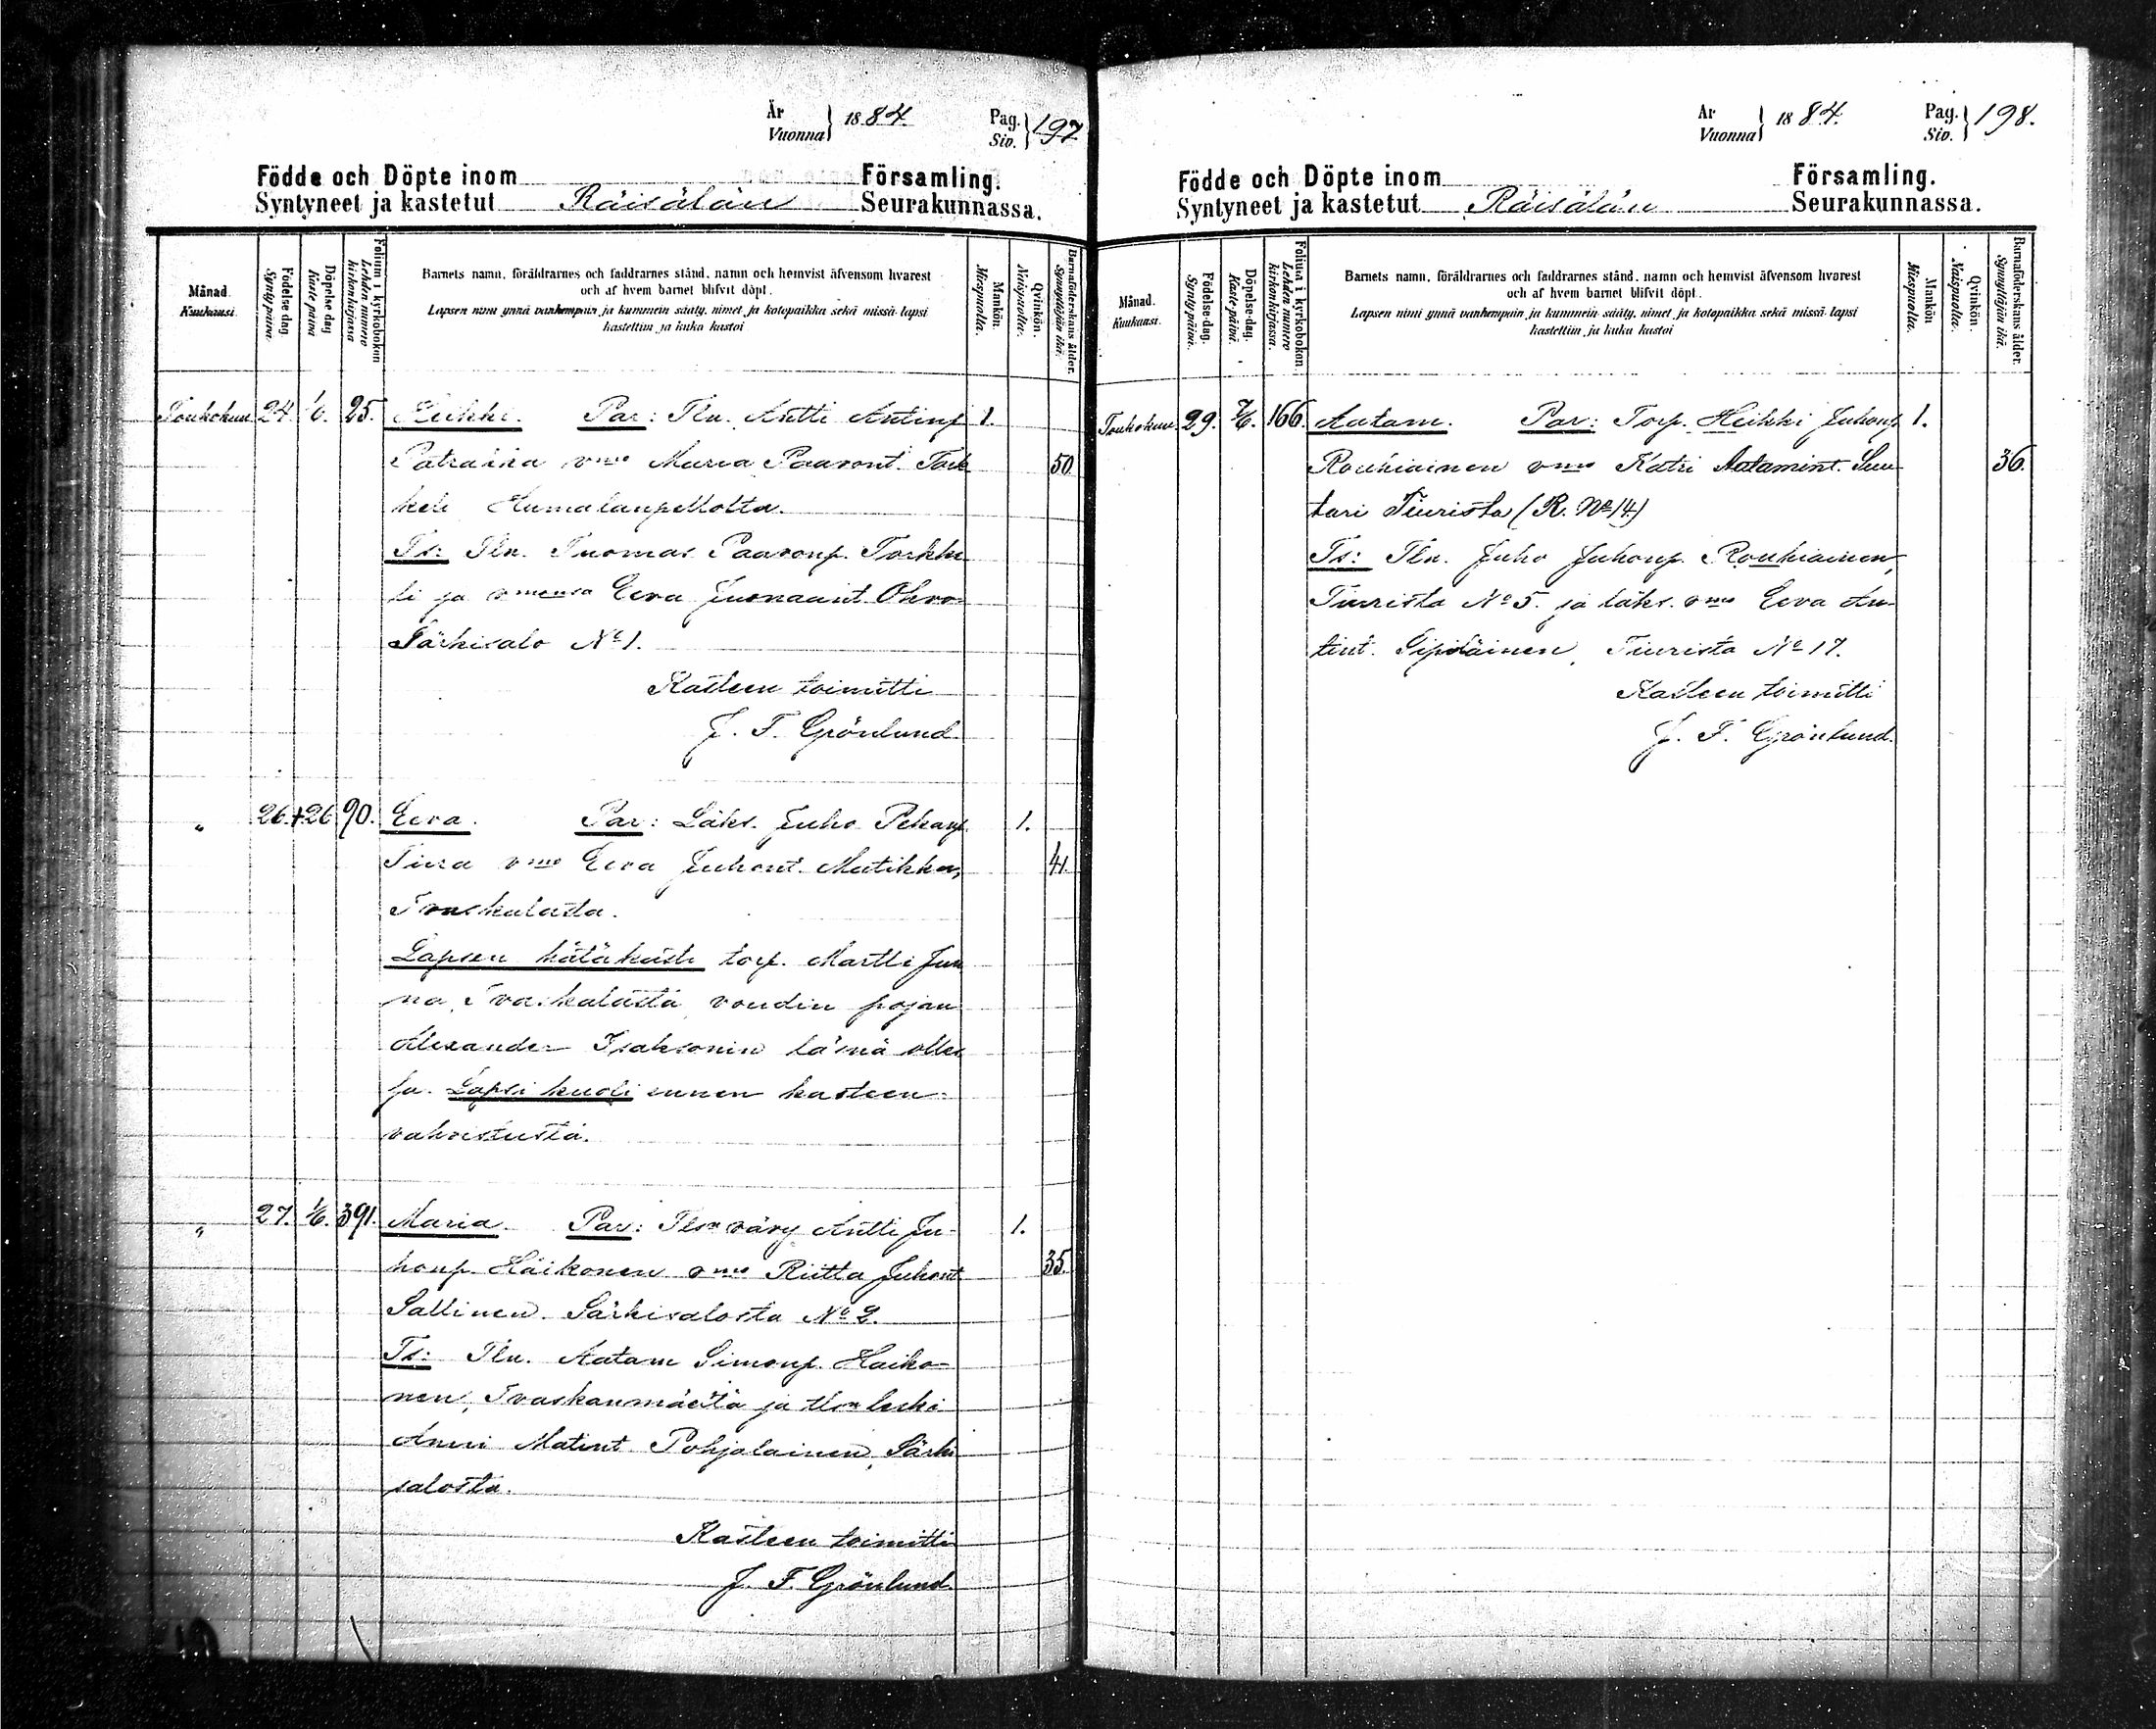 År
Vuonna } 1884.
Pag.
Siv. } 197
Födde och Döpte inom Församling.
Syntyneet ja kastetut Räisälän Seurakunnassa.
Månad.
Kuukausi.
Födelse dag.
Syntypäivä.
Döpelse dag
Kaste päivä
Folium i kyrkoboken
Lehden numero kirkonkirjassa
Barnets namn, föräldrarnes och faddrarnes stånd, namn och hemvist äfvensom hvarest
och af hvem barnet blifvit döpt.
Lapsen nimi ynnä vanhempain ja kummein sääty, nimet ja kotopaikka sekä missä lapsi
kastettiin ja kuka kastoi
Mankön.
Miespuolta.
Qvinkön.
Naispuolta.
Barnaföderskans ålder.
Synnyttäjän ikä.
Toukokuu 24. 1/6. 25. Heikki. Par: Tln. Antti Antinp 1.
Patraikka vmo Maria Paavont. Tork 50
keli Humalaupellolta.
Ts: Tln. Tuomas Paavonp. Torkke
li ja vmonsa Eeva Juonaant. Ohvo
Särkisalo No 1.
Kasteen toimitti
J. F. Grönlund
" 26. +26 90. Eeva. Par: Läks. Juho Pekanp. 1.
Tiira vmo Eeva Juhont. Mutikka, 41.
Ivaskalasta.
Lapsen hätäkasti torp. Martti Jun
na, Ivaskalasta, voudin pojan
Alexander Isaksonin läsnä olles
sa. Lapsi kuoli ennen kasteen
vahvistusta.
" 27. 1/6. 391. Maria. Par: Tlsn vävy Antti Ju- 1.
honp. Häikonen vmo Riitta Juhont 35.
Sallinen. Särkisalosta No 2.
Ts: Tln. Aatam Simonp. Haiko-
nen, Ivaskanmäeltä ja tlsn leski
Anni Matint Pohjalainen, Särki
salosta.
Kasteen toimitti
J. F. Grönlund.
År
Vuonna } 1884.
Pag.
Siv. } 198.
Födde och Döpte inom Församling.
Syntyneet ja kastetut Räisälän Seurakunnassa.
Månad.
Kuukausi.
Födelse-dag.
Syntypäivä.
Döpelse-dag.
Kaste päivä.
Folium i kyrkoboken
Lehden numero kirkonkirjassa.
Barnets namn, föräldrarnes och faddrarnes stånd, namn och hemvist äfvensom hvarest
och af hvem barnet blifvit döpt.
Lapsen nimi ynnä vanhempain ja kummein sääty, nimet ja kotopaikka sekä missä lapsi
kastettiin ja kuka kastoi
Mankön
Miespuolta.
Qvinkön.
Naispuolta.
Barnaföderskans ålder.
Synnyttäjän ikä.
Toukokuu 29. 7/6. 166. Aatam. Par: Torp. Heikki Juhonp. 1.
Roukiainen vmo Katri Aatamint. Suu 36.
tari Tiurista (R. No 14)
Ts: Tln. Juho Juhonp. Roukiainen,
Tiurista No 5. ja läks. vmo Eeva An-
tint. Tiurista No 17.
Kasteen toimitti
J. F. Grönlund.